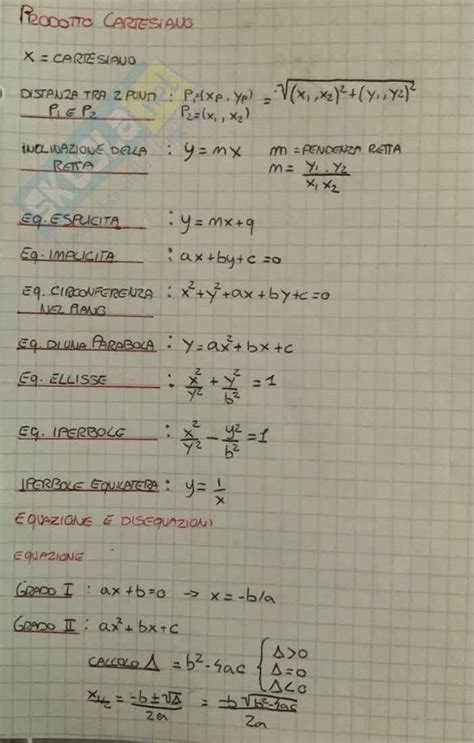 PRODOTTO CARTESIANO
X = CARTESIANO
DISTANZA TRA 2 PUNTI : P₁=(xₚ, yₚ) = √(x₁,x₂)²+(y₁,y₂)²
P₁ E P₂ P₂=(x₁, x₂)
INCLINAZIONE DELLA : y = mx m = PENDENZA RETTA
RETTA m = y₁.y₂/x₁x₂
EQ. ESPLICITA : y = mx+q
EQ. IMPLICITA : ax+by+c=0
EQ. CIRCONFERENZA : x²+y²+ax+by+c=0
NEL PIANO
EQ. DI UNA PARABOLA : y=ax²+bx+c
EQ. ELLISSE : x²/y² + y²/b² = 1
EQ. IPERBOLE : x²/y² - y²/b² = 1
IPERBOLE EQUILATERA : y = 1/x
EQUAZIONE E DISEQUAZIONI
EQUAZIONE
GRADO I : ax+b=0 → x=-b/a
GRADO II : ax²+bx+c
CALCOLO Δ = b²-4ac { Δ>0
Δ=0
Δ<0
x₁/₂ = -b±√Δ/2a = -b√b²-4ac/2a